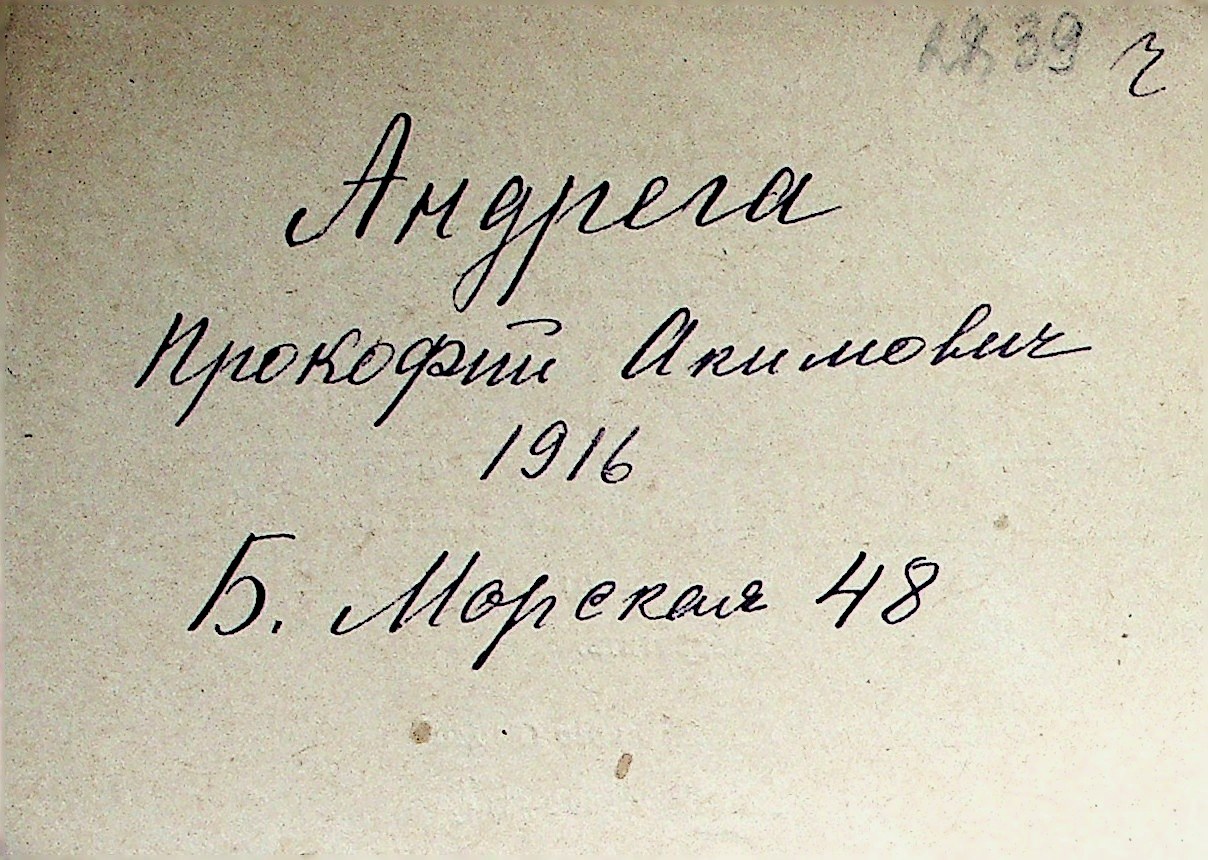 39 г
Андрега
Прокофий Акимович
1916
Б. Морская 48